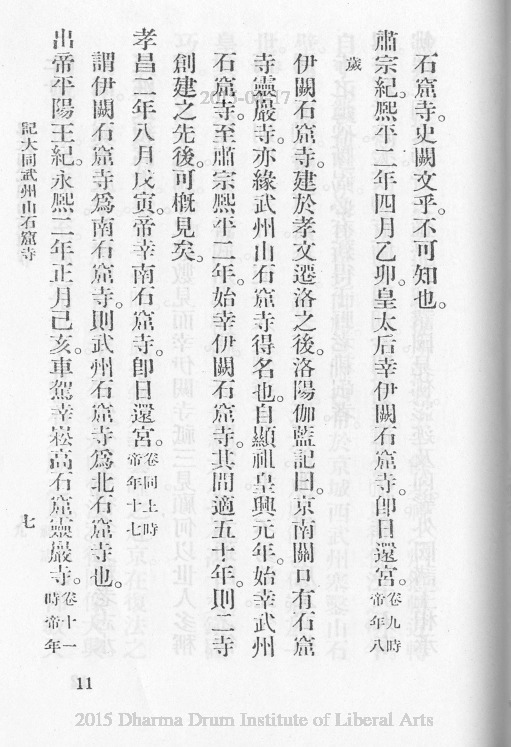 石窟寺。史闕文乎。不可知也。
肅宗紀。熙平二年四月乙卯。皇太后幸伊闕石窟寺。卽日還宮。卷九時帝年八
歲
伊闕石窟寺。建於孝文遷洛之後。洛陽伽藍記曰。京南關口有石窟
寺靈巖寺。亦緣武州山石窟寺得名也。自顯祖皇興元年。始幸武州
石窟寺。至肅宗熙平二年。始幸伊闕石窟寺。其間適五十年。則二寺
創建之先後。可槪見矣。
孝昌二年八月戊寅。帝幸南石窟寺。卽日還宮。卷同上時帝年十七
謂伊闕石窟寺爲南石窟寺。則武州石窟寺爲北石窟寺也。
出帝平陽王紀。永熙二年正月己亥。車駕幸嵩高石窟靈巖寺。卷十一時帝年
記大同武州山石窟寺
七
11
2015 Dharma Drum Institute of Liberal Arts